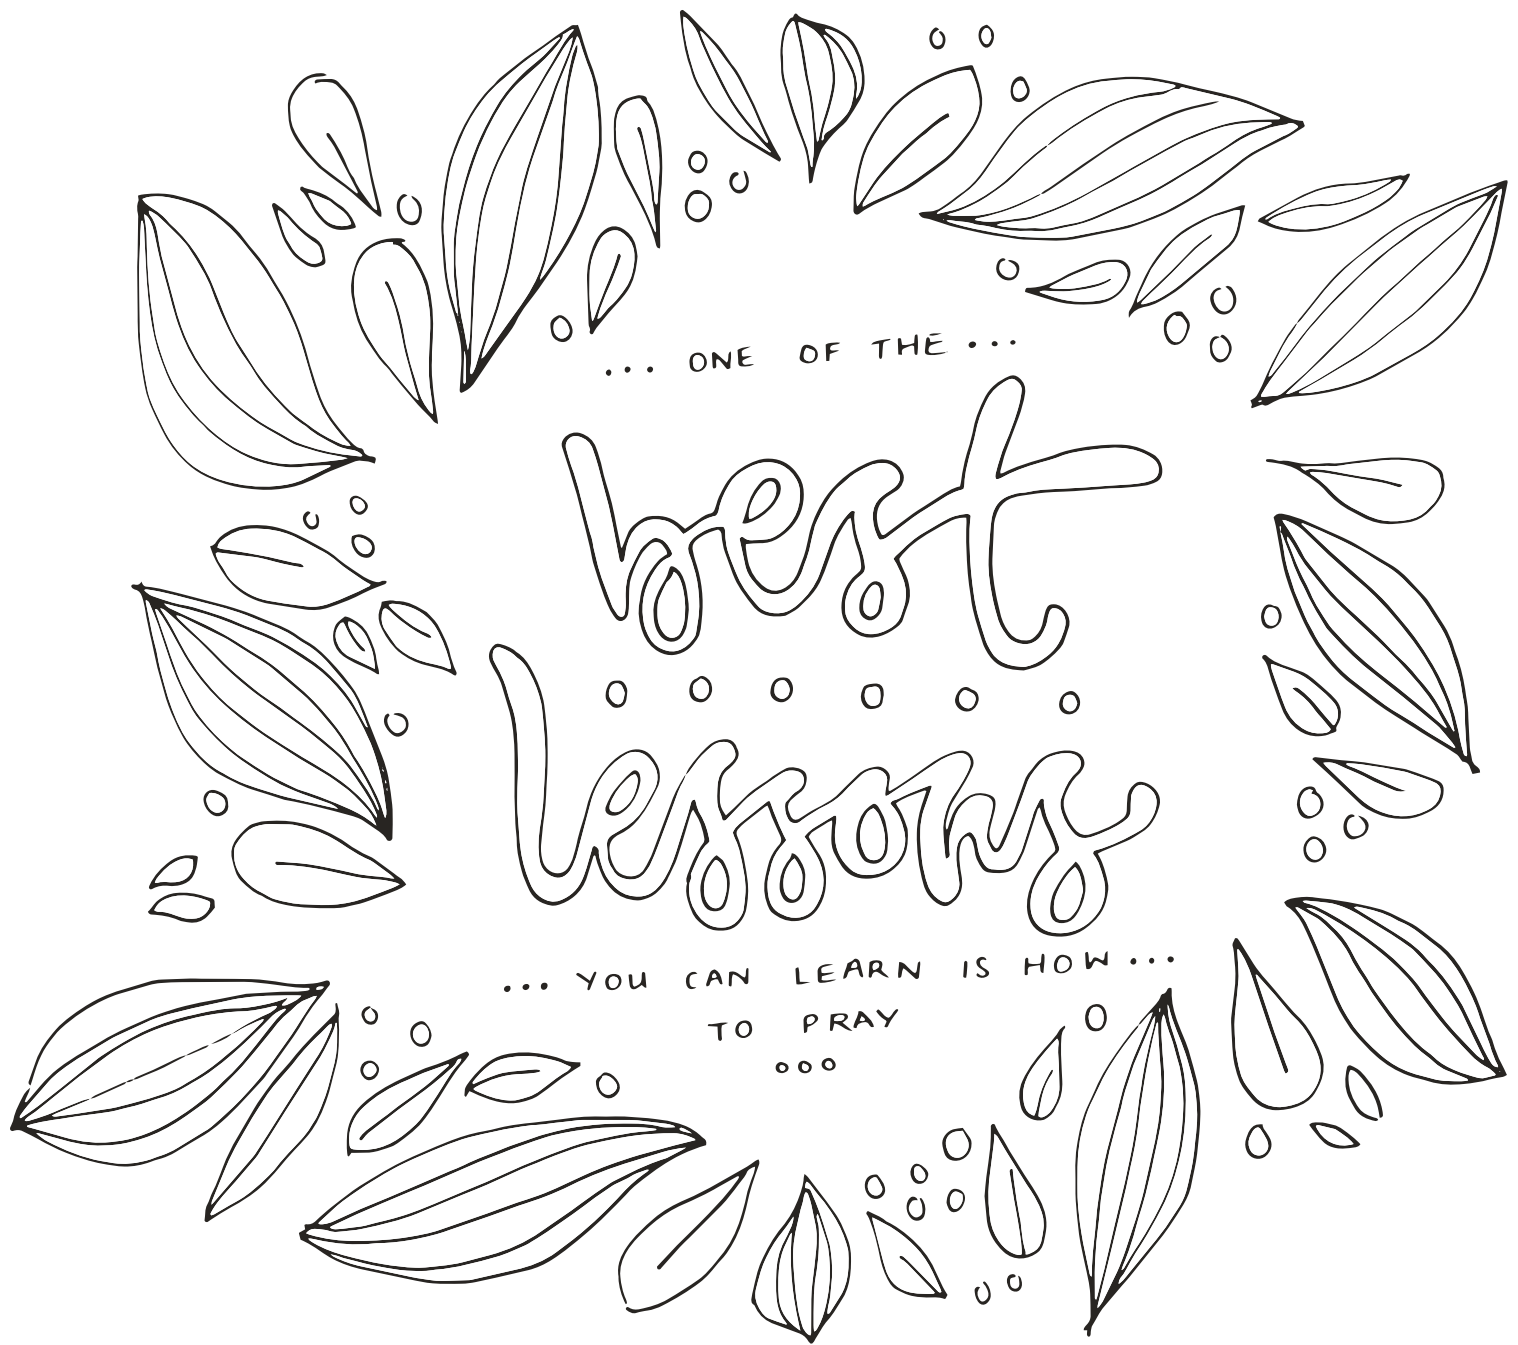 ... ONE OF THE ...
best
lessons
... YOU CAN LEARN IS HOW ...
TO PRAY